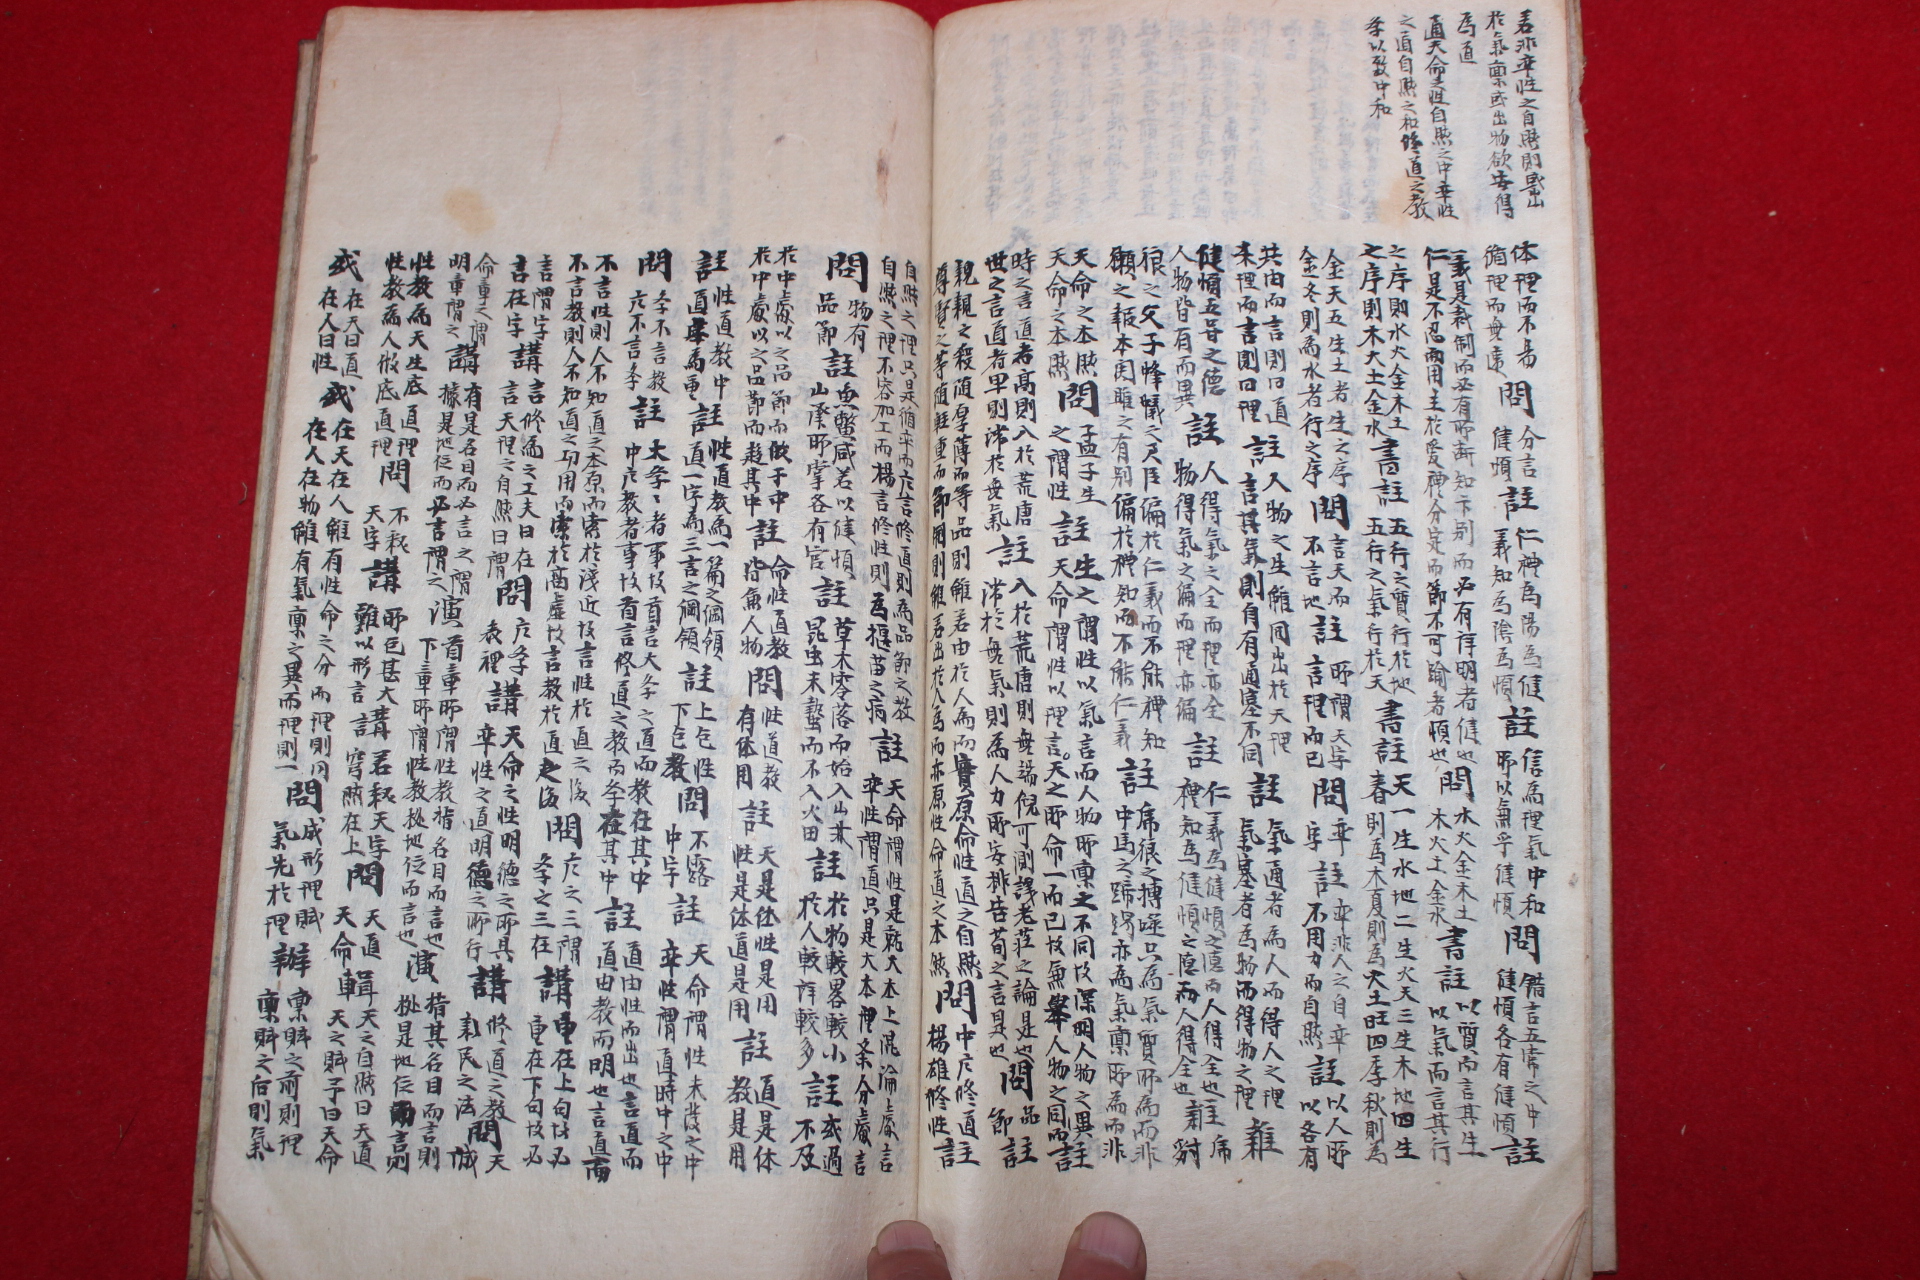 若非率性之自然則或出
於氣稟或出物欲安得
為道
道天命之性自然之中率性
之道自然之和修道之教
今以致中和
体理而不易
循理而無違
問
分言
健順
註
仁禮為陽為健
義知為陰為順
註
信為理氣中和
問
錯言五常之中
健順各有健順
註
義是裁制而必有所斷知卞別而必有詳明者健也
仁是不忍而用主於愛禮分定而節不可踰者順也
問
水火金木土
木火土金水
書註
以質而言其生
以氣而言其行
之序則水火金木土
之序則木火土金水
書註
五行之質行於地
五行之氣行於天
書註
天一生水地二生火天三生木地四生
春則為木夏則為火土旺四季秋則為
金天五生土者生之序
金冬則為水者行之序
問
言天而
不言地
註
所謂天字
言理而已
問
率
字
註
率非人之自率
不用力而自然
註
以人所
以各有
共由而言則曰道
本理而言則曰理
註
人物之生雖同出於天理
言其氣則自有通塞不同
註
氣通者為人而得人之理
氣塞者為物而得物之理
難
健順五常之德
人物皆有而異
註
人得氣之全而理亦全
物得氣之偏而理亦偏
註
仁義為健順之德而人得全也
禮知為健順之德而人得全也
難
虎
豺
狼之父子蜂蟻之君臣偏於仁義而不能禮知
願之報本関雎之有別偏於禮知而不能仁義
註
虎狼之搏噬只為氣質所為而非
中馬之蹄齧亦為氣稟所為而非
天命之本然
天命之本然
問
孟子生
之謂性
註
生之謂性以氣言而人物所稟之不同故深明人物之異
言天命謂性以理言天之所命一而已故無擧人物之同而
註
時之言道者高則入於荒唐
世之言道者卑則滯於無氣
註
入於荒唐則無端倪可測識老莊之論是也
滯於無氣則為人力所安排告荀之言是也
問
品
節
註
親親之殺隨厚薄而等品則雖若由於人為而實原命性道之自然
尊賢之等隨輕重而節開則雖若出於人為而亦原性命道之本然
問
中庸修道
楊雄修性
註
自然之理只是循率而庸言修道則為品節之教
自然之理不容加工而楊言修性則為揠苗之病
註
天命謂性是就大本上混淪處言
率性謂道只是大本裡条分處言
問
物有
品節
註
魚鱉咸若以健順
山澤所掌各有官
註
草木零落而始入山林
昆虫未蟄而不入火田
註
於物較畧較小
於人較詳較多
註
或過
不及
於中處以之品節而做于中
於中處以之品節而趨其中
註
命性道教
皆兼人物
問
性道教
有体用
註
天是体性是用
性是体道是用
註
道是体
教是用
註
性道教中
道字為重
註
性道教為一篇之綱領
道一字為三言之綱領
註
上包性
下包教
問
不露
中字
註
天命謂性未發之中
率性謂道時中之中
問
学不言教
庸不言学
註
大学学者事故首言大学之道而教在其中
中庸教者事故首言修道之教而学在其中
註
道由性而出也言道而
道由教而明也言道而
不言性則人不知道之本原而索於淺近故言性於道之後
不言教則人不知道之功用而索於高虛故言教於道之後
問
庸之三謂
学之三在
講
重在上句故必
重在下句故必
言謂字
言在字
講
言修為之工夫曰在
言天理之自然曰謂
問
庸学
表裡
講
天命之性明德之所具
率性之道明德之所行
講
修道之教
新民之法
問
天
誠
命章之謂
明章謂之
講
有是名目而必言之謂
據是地位而必言謂之
演
首章所謂性教指名目而言也
下章所謂性教據地位而言也
演
指其名目而言則
據是地位而言則
性教為天生底道理
性教為人做底道理
問
不秖
天字
講
所包甚大
難以形言
講
若秖天字
言穹然在上
問
天道
天命
輯
天之自然曰天道
天之賦予曰天命
或
在天曰道
在人曰性
或
在天在人雖有性命之分而理則同
在人在物雖有氣稟之異而理則一
問
成形理賦
氣先於理
辦
稟賦之前則理
稟賦之后則氣